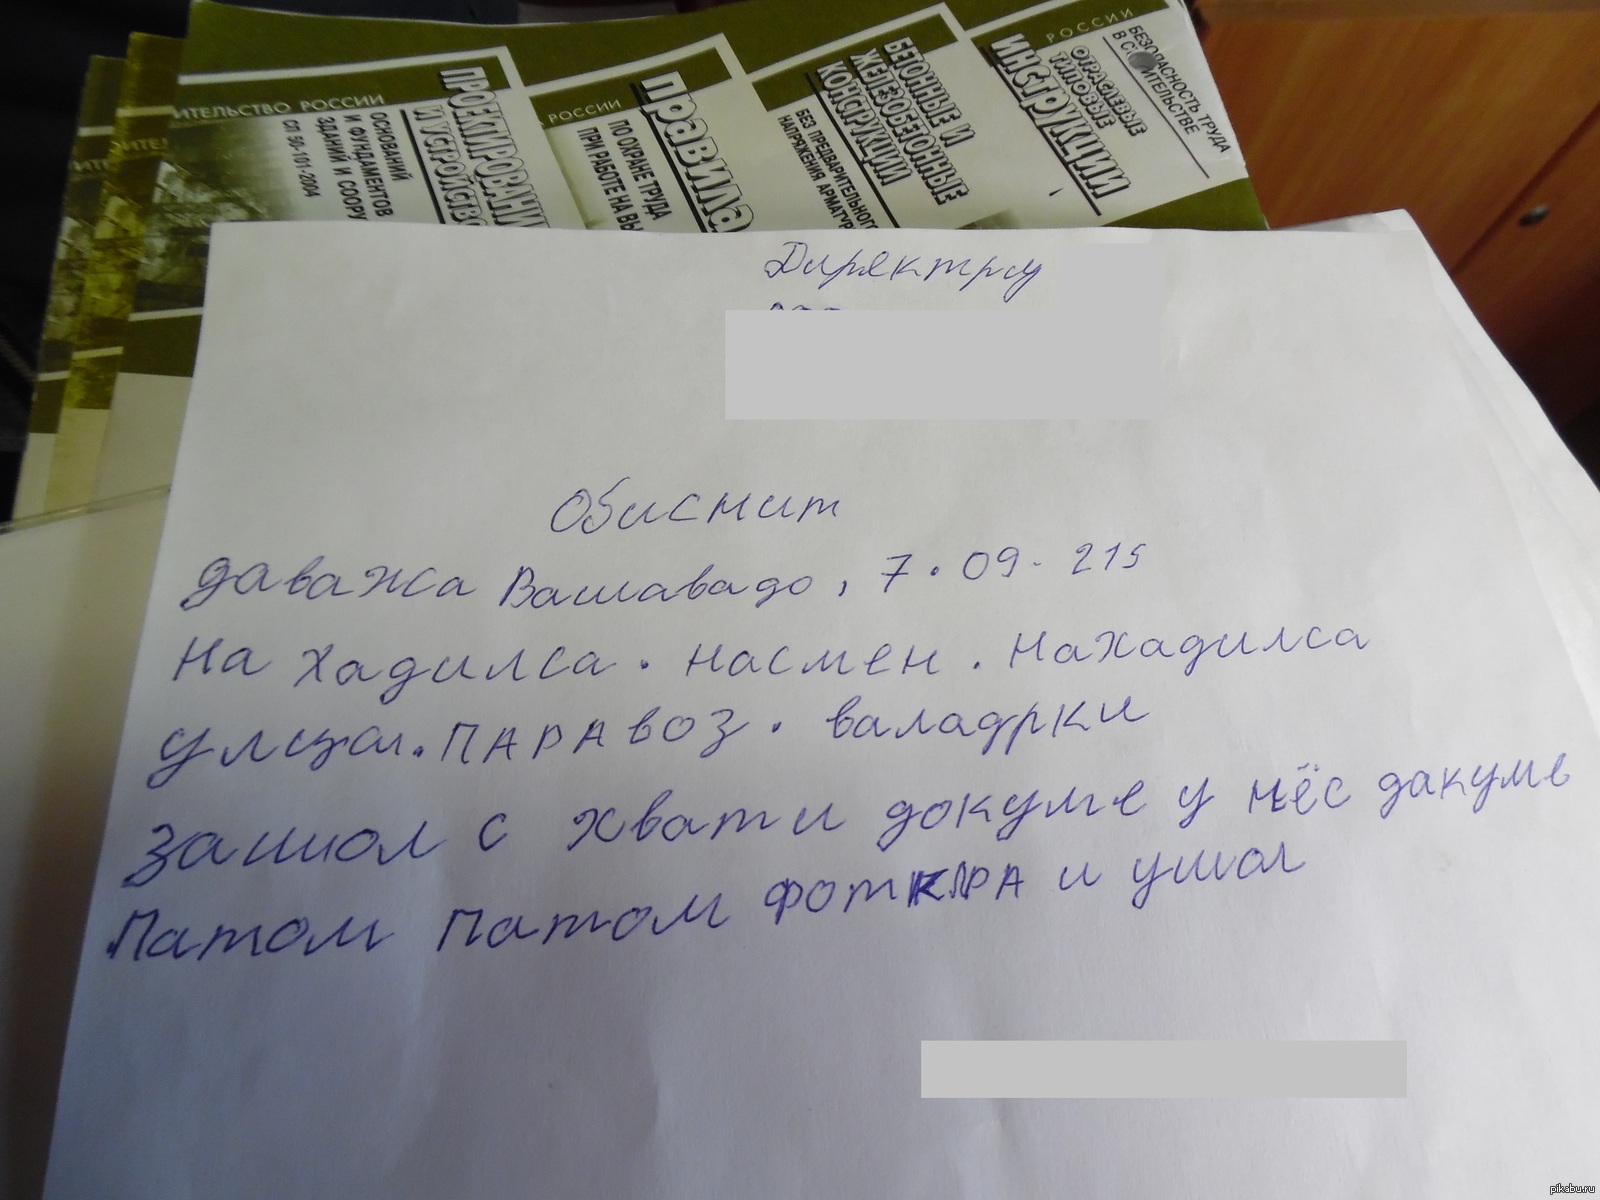 ИТЕЛЬСТВО РОССИИ
ПРОЕКТИРОВАНИЕ
И УСТРОЙСТВО
ОСНОВАНИЙ
И ФУНДАМЕНТОВ
ЗДАНИЙ И СООРУ
СП 50-101-2004
РОССИИ
ПРАВИЛА
ПО ОХРАНЕ ТРУДА
ПРИ РАБОТЕ НА ВЫ
БЕТОННЫЕ И
ЖЕЛЕЗОБЕТОННЫЕ
КОНСТРУКЦИИ
БЕЗ ПРЕДВАРИТЕЛЬНОГО
НАПРЯЖЕНИЯ АРМАТУР
РОССИИ
БЕЗОПАСНОСТЬ ТРУДА
В СТРОИТЕЛЬСТВЕ
ОТРАСЛЕВЫЕ
ТИПОВЫЕ
ИНСТРУКЦИИ
Директру
Обиснит
даважа Вашавадо, 7.09-215
На хадилса. насмен. Нахадилса
улица. ПАРАВОЗ. валадрки
зашиол с хвати докуме у нёс дакуме
Патом Патом и ушол
pikabu.ru